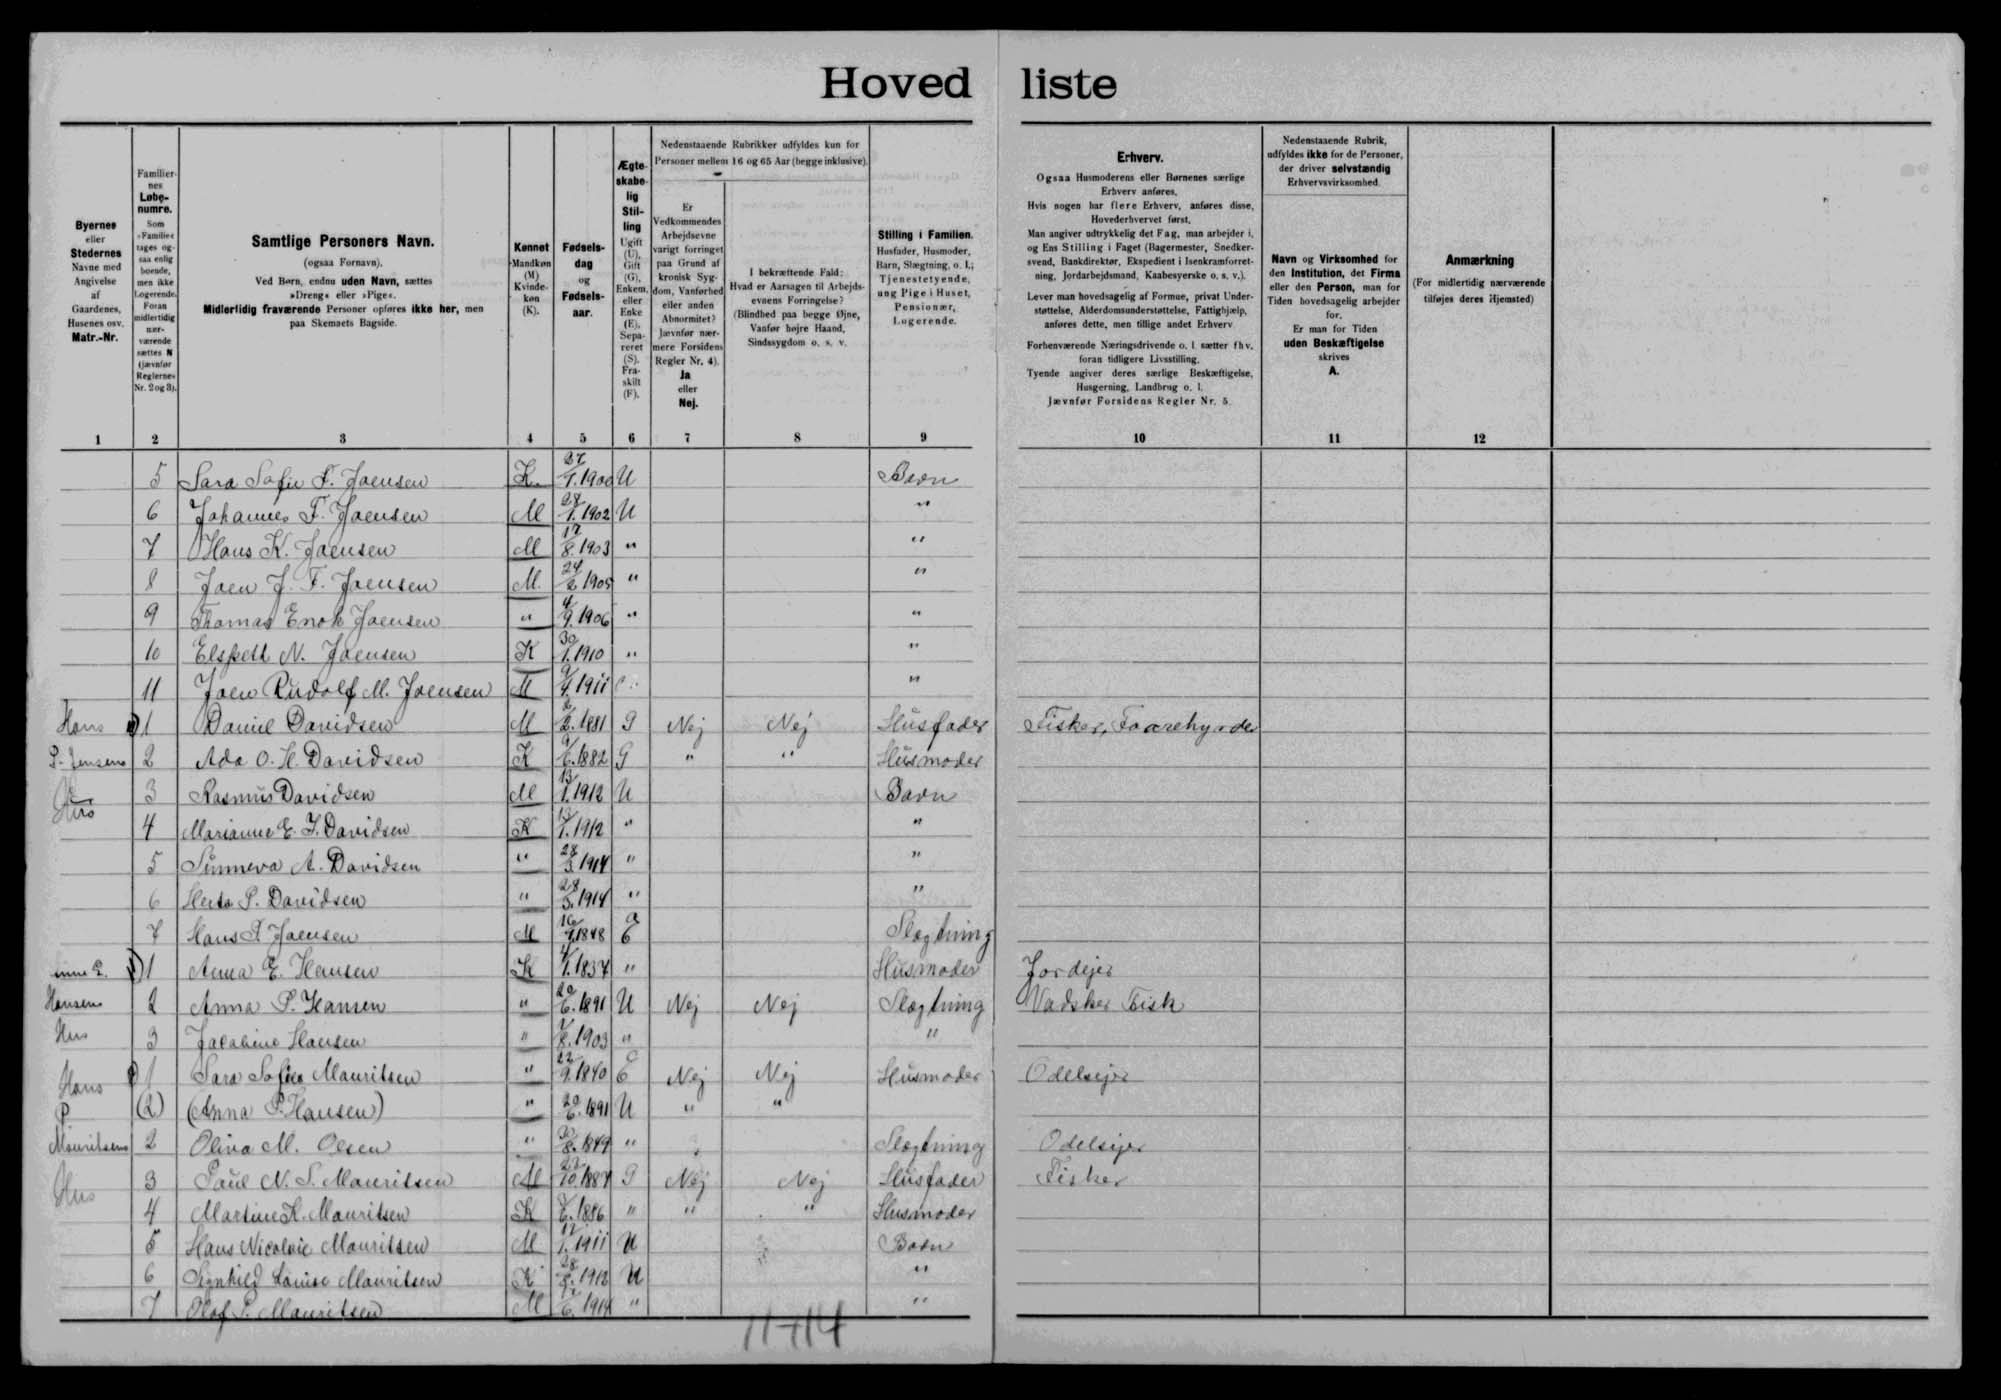 Hovedliste
Byernes
eller
Stedernes
Navne med
Angivelse
af
Gaardenes,
Husenes osv.
Matr.-Nr.
Familier-
nes
Løbe-
numre.
Som
»Familie«
tages og-
saa enlig
boende,
men ikke
Logerende.
Foran
midlertidig
nær-
værende
sættes N
(jævnfør
Reglernes
Nr. 2 og 3).
Samtlige Personers Navn.
(ogsaa Fornavn).
Ved Børn, endnu uden Navn, sættes
»Dreng« eller »Pige«.
Midlertidig fraværende Personer opføres ikke her, men
paa Skemaets Bagside.
Kønnet
Mandkøn
(M)
Kvinde-
køn
(K).
Fødsels-
dag
og
Fødsels-
aar.
Ægte-
skabe-
lig
Stil-
ling
Ugift
(U),
Gift
(G),
Enkem.
eller
Enke
(E),
Sepa-
reret
(S),
Fra-
skilt
(F).
Nedenstaaende Rubrikker udfyldes kun for
Personer mellem 16 og 65 Aar (begge inklusive).
Er
Vedkommendes
Arbejdsevne
varigt forringet
paa Grund af
kronisk Syg-
dom, Vanførhed
eller anden
Abnormitet?
Jævnfør nær-
mere Forsidens
Regler Nr. 4).
Ja
eller
Nej.
I bekræftende Fald:
Hvad er Aarsagen til Arbejds-
evnens Forringelse?
(Blindhed paa begge Øjne,
Vanfør højre Haand,
Sindssygdom o. s. v.
Stilling i Familien.
Husfader, Husmoder,
Barn, Slægtning, o. l.;
Tjenestetyende,
ung Pige i Huset,
Pensionær,
Logerende.
Erhverv.
Ogsaa Husmoderens eller Børnenes særlige
Erhverv anføres.
Hvis nogen har flere Erhverv, anføres disse,
Hovederhvervet først.
Man angiver udtrykkelig det Fag, man arbejder i,
og Ens Stilling i Faget (Bagermester, Snedker-
svend, Bankdirektør, Ekspedient i Isenkramforret-
ning, Jordarbejdsmand, Kaabesyerske o. s. v.).
Lever man hovedsagelig af Formue, privat Under-
støttelse, Alderdomsunderstøttelse, Fattighjælp,
anføres dette, men tillige andet Erhverv
Forhenværende Næringsdrivende o. l. sætter fhv.
foran tidligere Livsstilling.
Tyende angiver deres særlige Beskæftigelse,
Husgerning, Landbrug o. l.
Jævnfør Forsidens Regler Nr. 5.
Nedenstaaende Rubrik,
udfyldes ikke for de Personer,
der driver selvstændig
Erhvervsvirksomhed.
Navn og Virksomhed for
den Institution, det Firma
eller den Person, man for
Tiden hovedsagelig arbejder
for.
Er man for Tiden
uden Beskæftigelse
skrives
A.
Anmærkning
(For midlertidig nærværende
tilføjes deres Hjemsted)
1 2 3 4 5 6 7 8 9 10 11 12
5 Sara Sofie F. Joensen K. 27/1.1900 U Barn
6 Johannes F. Joensen M 28/1.1902 U "
7 Hans K. Joensen M 17/8.1903 " "
8 Joen J. F. Joensen M. 24/2 1905 " "
9 Thomas Enok Joensen " 4/9.1906 " "
10 Elspett N. Joensen K 30/1.1910 " "
11 Joen Rudolf M. Joensen M 9/4.1911 "
Hans 1 Daniel Davidsen M 2/2.1881 G Nej Nej Husfader Fisker, Faarehyrde
P. Jensens 2 Ada O. H. Davidsen K 9/6.1882 G " " Husmoder
Hus 3 Rasmus Davidsen M 13/1.1912 U Barn
4 Marianne E. J. Davidsen K 13/1.1912 " "
5 Sunneva A. Davidsen " 28/3.1914 " "
6 Herta P. Davidsen " 28/3.1914 " "
7 Hans P Joensen M 16/9.1848 E Slægtning
1 Anna E. Hansen K 4/1.1837 " Husmoder Jordejer
Hansens 2 Anna P. Hansen " 20/6.1891 U Nej Nej Slægtning Vadsker Fisk
Hus 3 Jacobine Hansen " 8.1903 " "
Hans 1 Sara Sofie Mauritsen " 22/9.1840 E Nej Nej Husmoder Odelsejer
P (2) (Anna P. Hansen) " 20/6.1891 U " "
Mauritsens 2 Oliva M. Olsen " 20/8.1849 " Slægtning Odelsejer
Hus 3 Paul N. S. Mauritsen M 22/10.1887 G Nej Nej Husfader Fisker
4 Martine K. Mauritsen K 6.1886 " " " Husmoder
5 Hans Nicolaie Mauritsen M 12/1.1911 U Barn
6 Signhild Louise Mauritsen K 28/8.1912 U "
7 Olof P. Mauritsen M 6.1914 " "
11+14